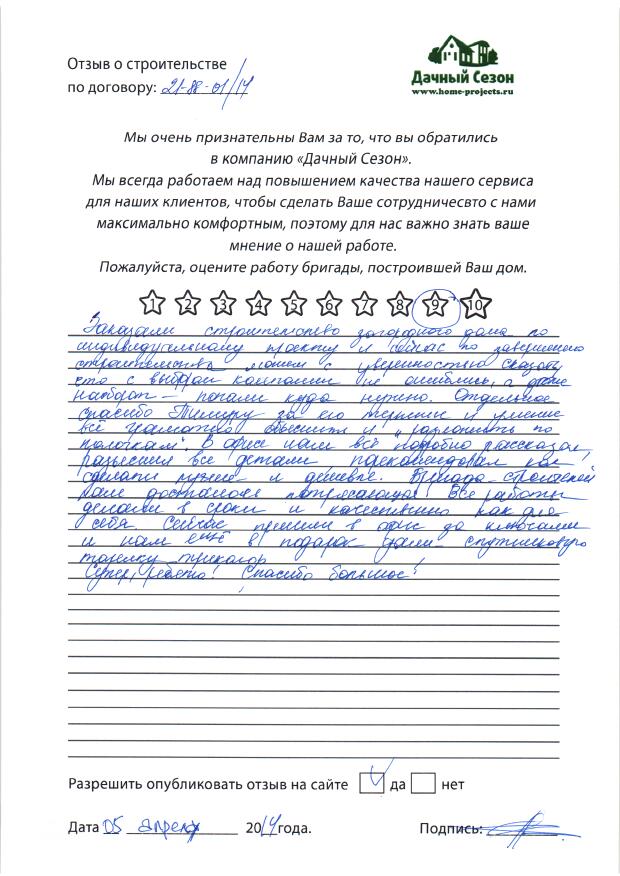 Отзыв о строительстве
по договору: 21-88-01/14
Дачный Сезон
www.home-projects.ru
Мы очень признательны Вам за то, что вы обратились
в компанию «Дачный Сезон».
Мы всегда работаем над повышением качества нашего сервиса
для наших клиентов, чтобы сделать Ваше сотрудничесвто с нами
максимально комфортным, поэтому для нас важно знать ваше
мнение о нашей работе.
Пожалуйста, оцените работу бригады, построившей Ваш дом.
1 2 3 4 5 6 7 8 9 10
Заказали строительство загородного дома по
индивидуальному проекту и сейчас по завершению
строительства можем с уверенностью сказать,
что с выбором компании не ошиблись, а даже
наоборот - попали куда нужно. Отдельное
спасибо Тимуру за его терпение и умение
всё грамотно объяснить и "разложить по
полочкам". В офисе нам всё подробно рассказали,
разъяснили все детали, порекомендовали как
сделать лучше и дешевле. Бригада строителей
нам досталась потрясающая. Все работы
делали в сроки и качественно как для
себя. Сейчас пришли в офис за ключами
и нам ещё в подарок дали спутниковую
тарелку триколор.
Супер, ребята! Спасибо большое!
Разрешить опубликовать отзыв на сайте да нет
Дата 05 апреля 2014 года. Подпись: